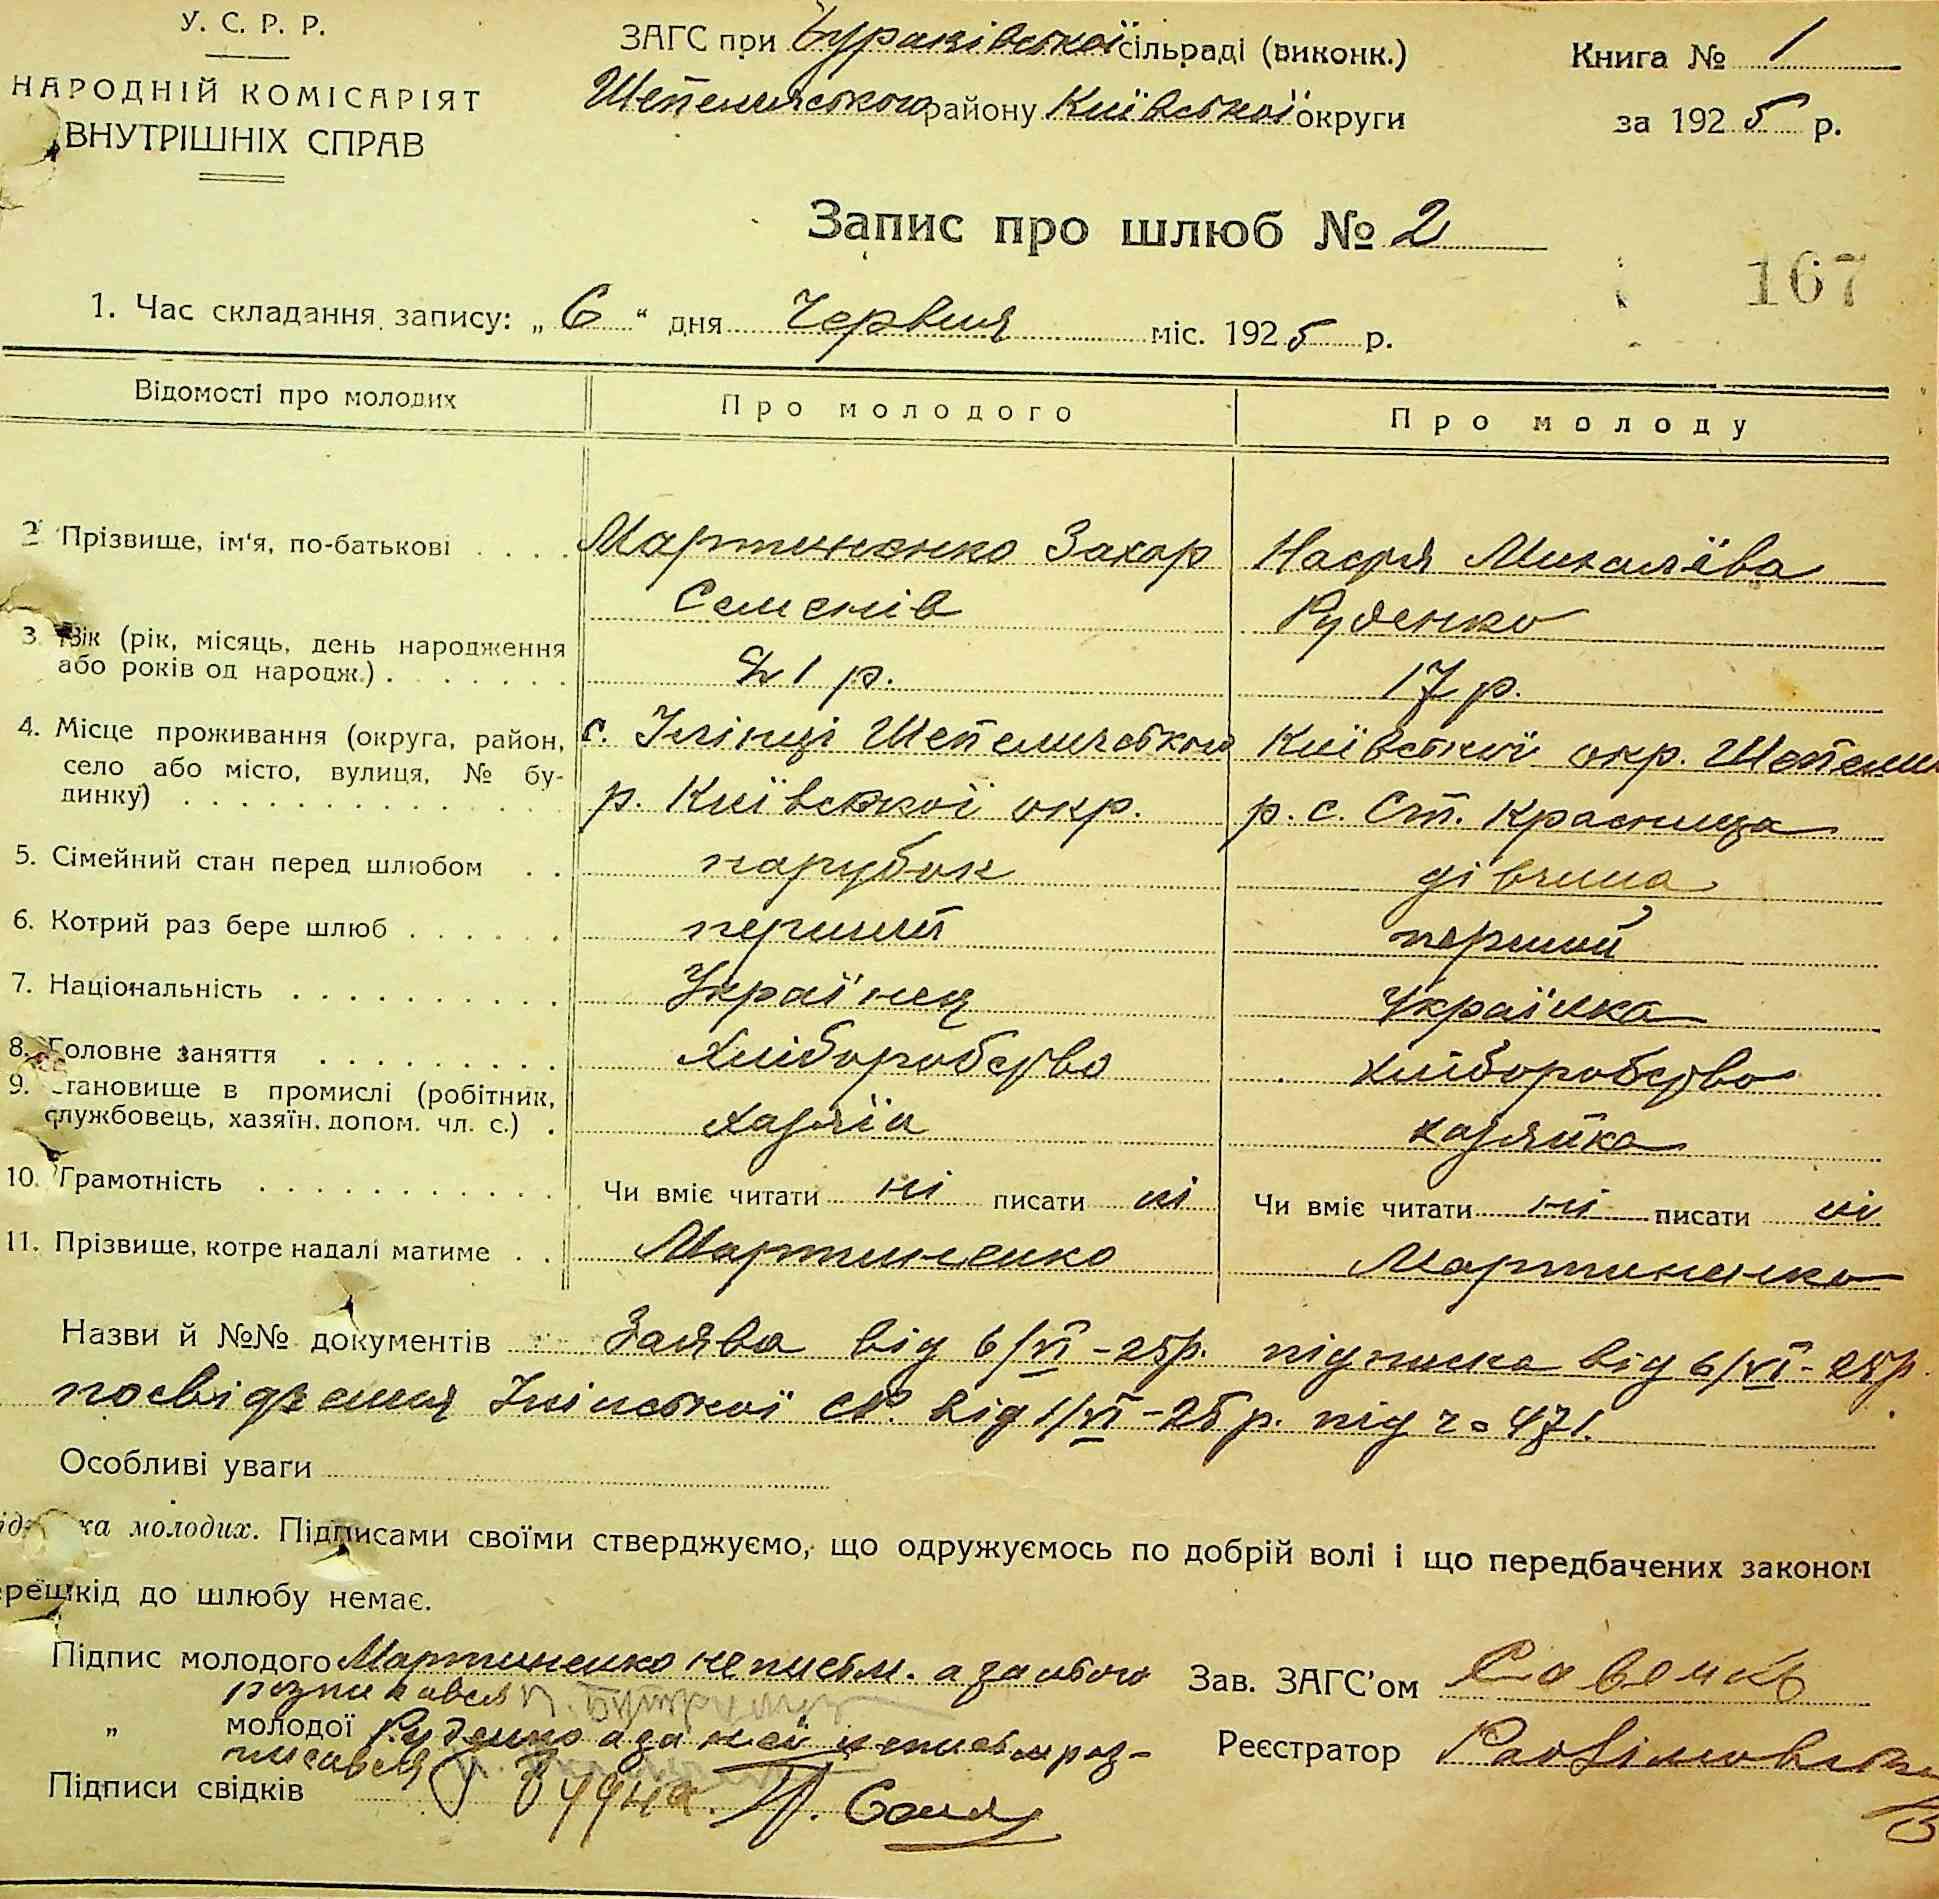 У. С. Р. Р.
НАРОДНІЙ КОМІСАРІЯТ
ВНУТРІШНІХ СПРАВ
ЗАГС при Бураківської сільраді (виконк.)
Шепелицького району Київської округи
Книга № 1
за 1925 р.
Запис про шлюб № 2
167
1. Час складання запису: „6“ дня Червня міс. 1925 р.
Відомості про молодих Про молодого Про молоду
2 Прізвище, ім'я, по-батькові . . . . Мартиненко Захар Настя Михалёва
Семенів Руденко
3. Вік (рік, місяць, день народження
або років од народж.) . . . . . . . 21 р. 17 р.
4. Місце проживання (округа, район, с. Ілінці Шепелицького Київської окр. Шепели
село або місто, вулиця, № бу-
динку) . . . . . . . . . . . . . . р. Київської окр. р. с. Ст. Красниця
5. Сімейний стан перед шлюбом . . парубок дівчина
6. Котрий раз бере шлюб . . . . . . перший перший
7. Національність . . . . . . . . . . Українец Українка
8. Головне заняття . . . . . . . . . Хліборобство хліборобство
9. Становище в промислі (робітник,
службовець, хазяїн, допом. чл. с.) . Хазяїн хазяйка
10. Грамотність . . . . . . . . . . . Чи вміє читати ні писати ні Чи вміє читати ні писати ні
11. Прізвище, котре надалі матиме . . Мартиненко Мартиненко
Назви й №№ документів Заява від 6/VI-25р. підписка від 6/VI-25р.
посвідчення Ілінської с.р. від 1/VI-25 р. під ч = 471.
Особливі уваги
молодих. Підписами своїми стверджуємо, що одружуємось по добрій волі і що передбачених законом
ерешкід до шлюбу немає.
Підпис молодого Мартиненко неписьм. а за нього
розписався
„ молодої Руденко а за неї неписьм роз-
писався
Підписи свідків
Зав. ЗАГС'ом Савенко
Реєстратор